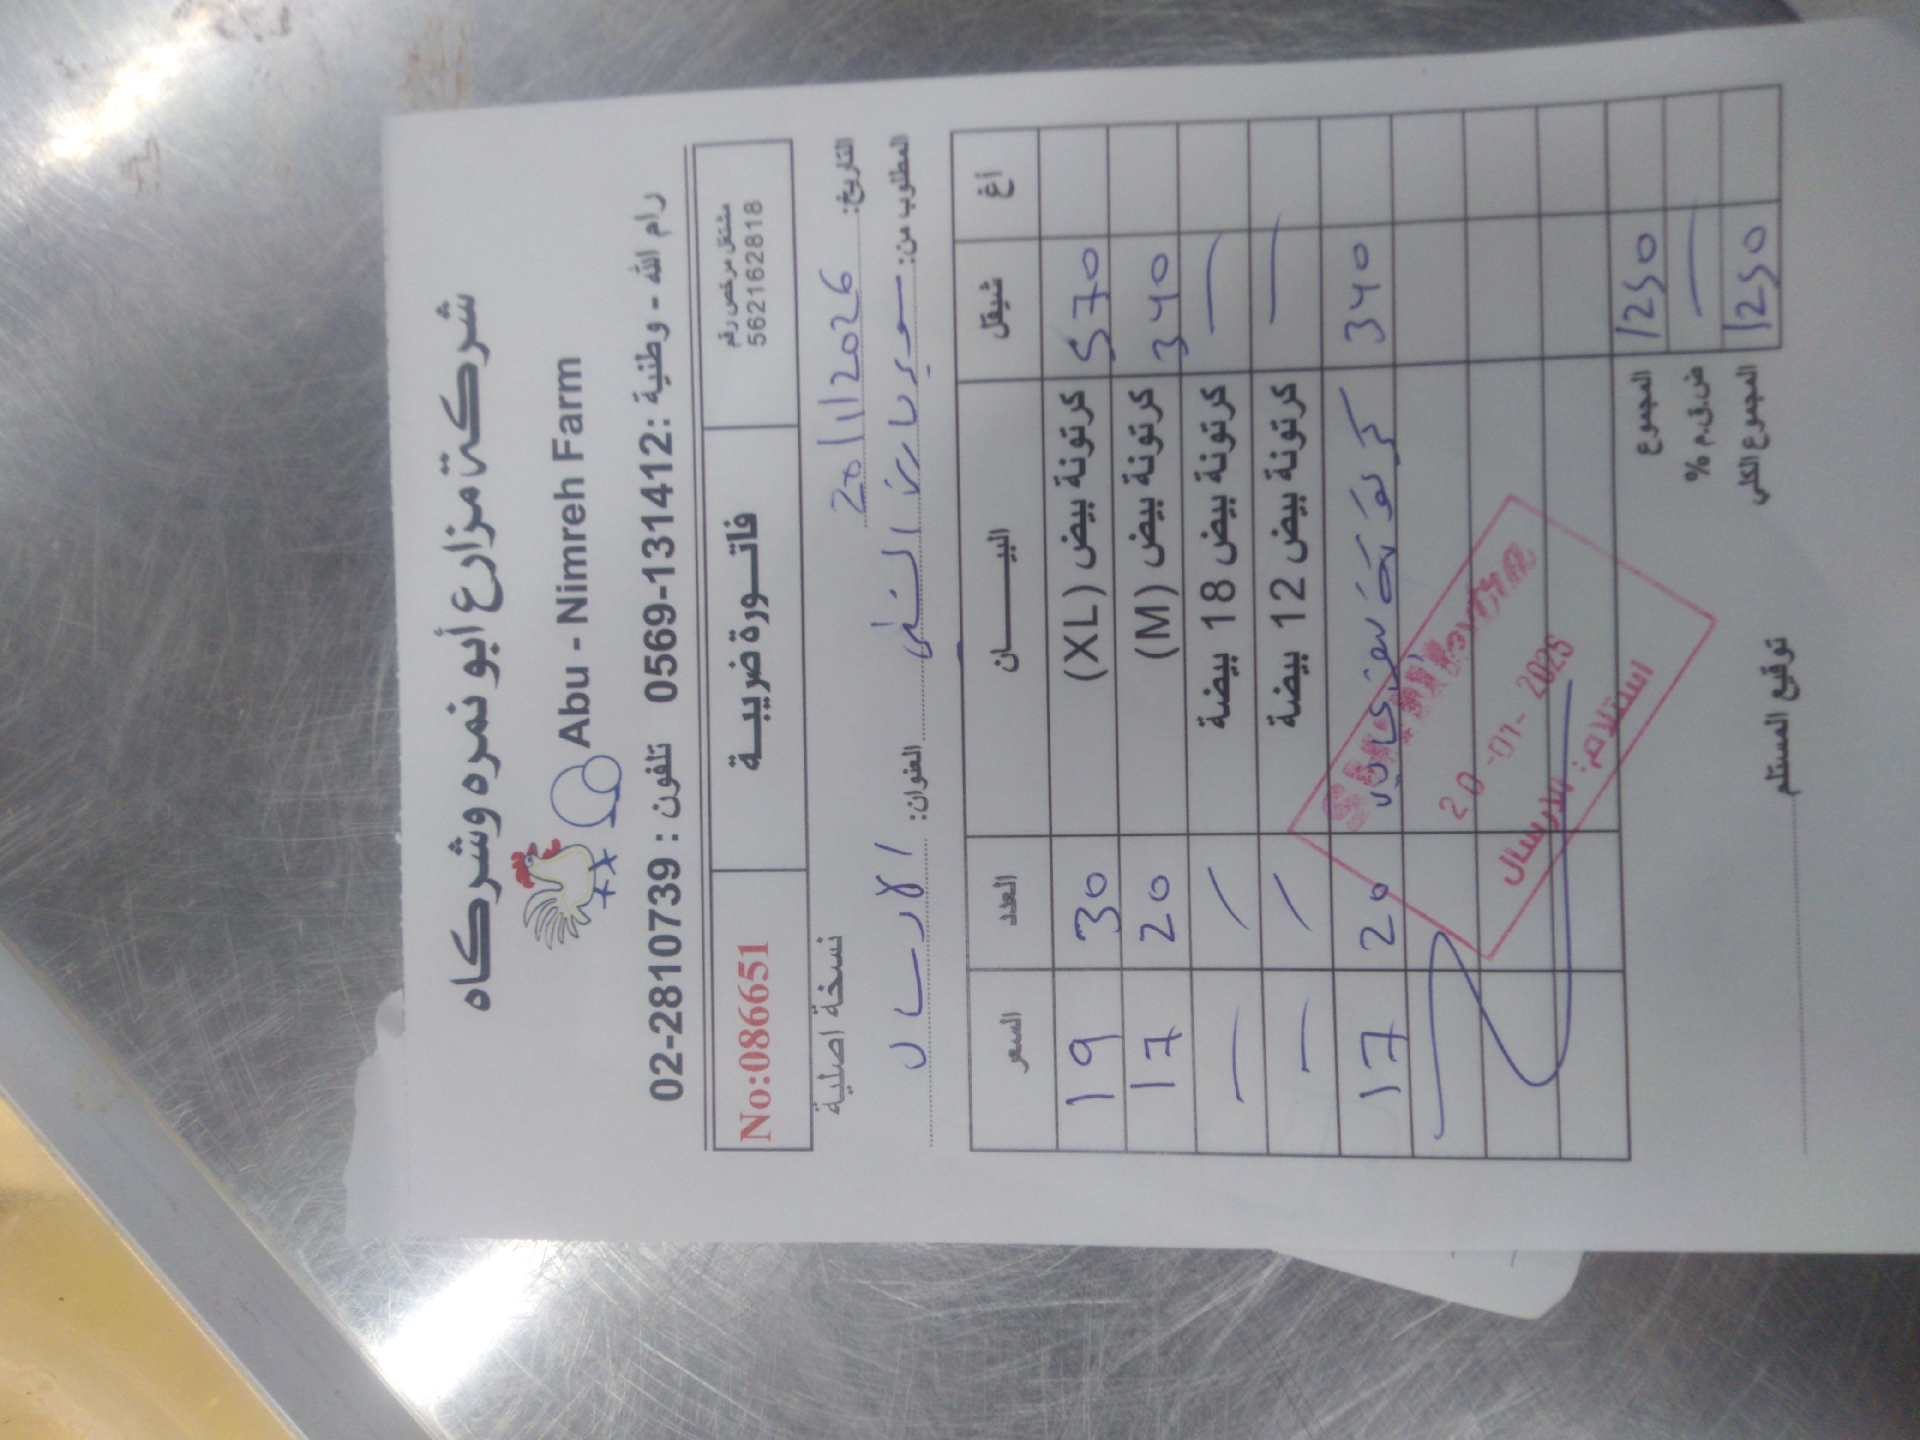 شركة مزارع أبو نمره وشركاه
Abu - Nimreh Farm
رام الله - وطنية : 0569-131412 تلفون : 02-2810739
مشتغل مرخص رقم
562162818
فاتـــورة ضريبيـــة
No:086651
التاريخ: 20/1/2026
نسخة اصلية
المطلوب من: سوبر ماركت العنوان: الارسال
شيقل أغ البيـــــــان العدد السعر
570 كرتونة بيض (XL) 30 19
340 كرتونة بيض (M) 20 17
— كرتونة بيض 18 بيضة / —
— كرتونة بيض 12 بيضة / —
340 20 17
1250 المجموع
— ض.ق.م %
1250 المجموع الكلي
20-01-2025
استلام: الارسال
توقيع المستلم